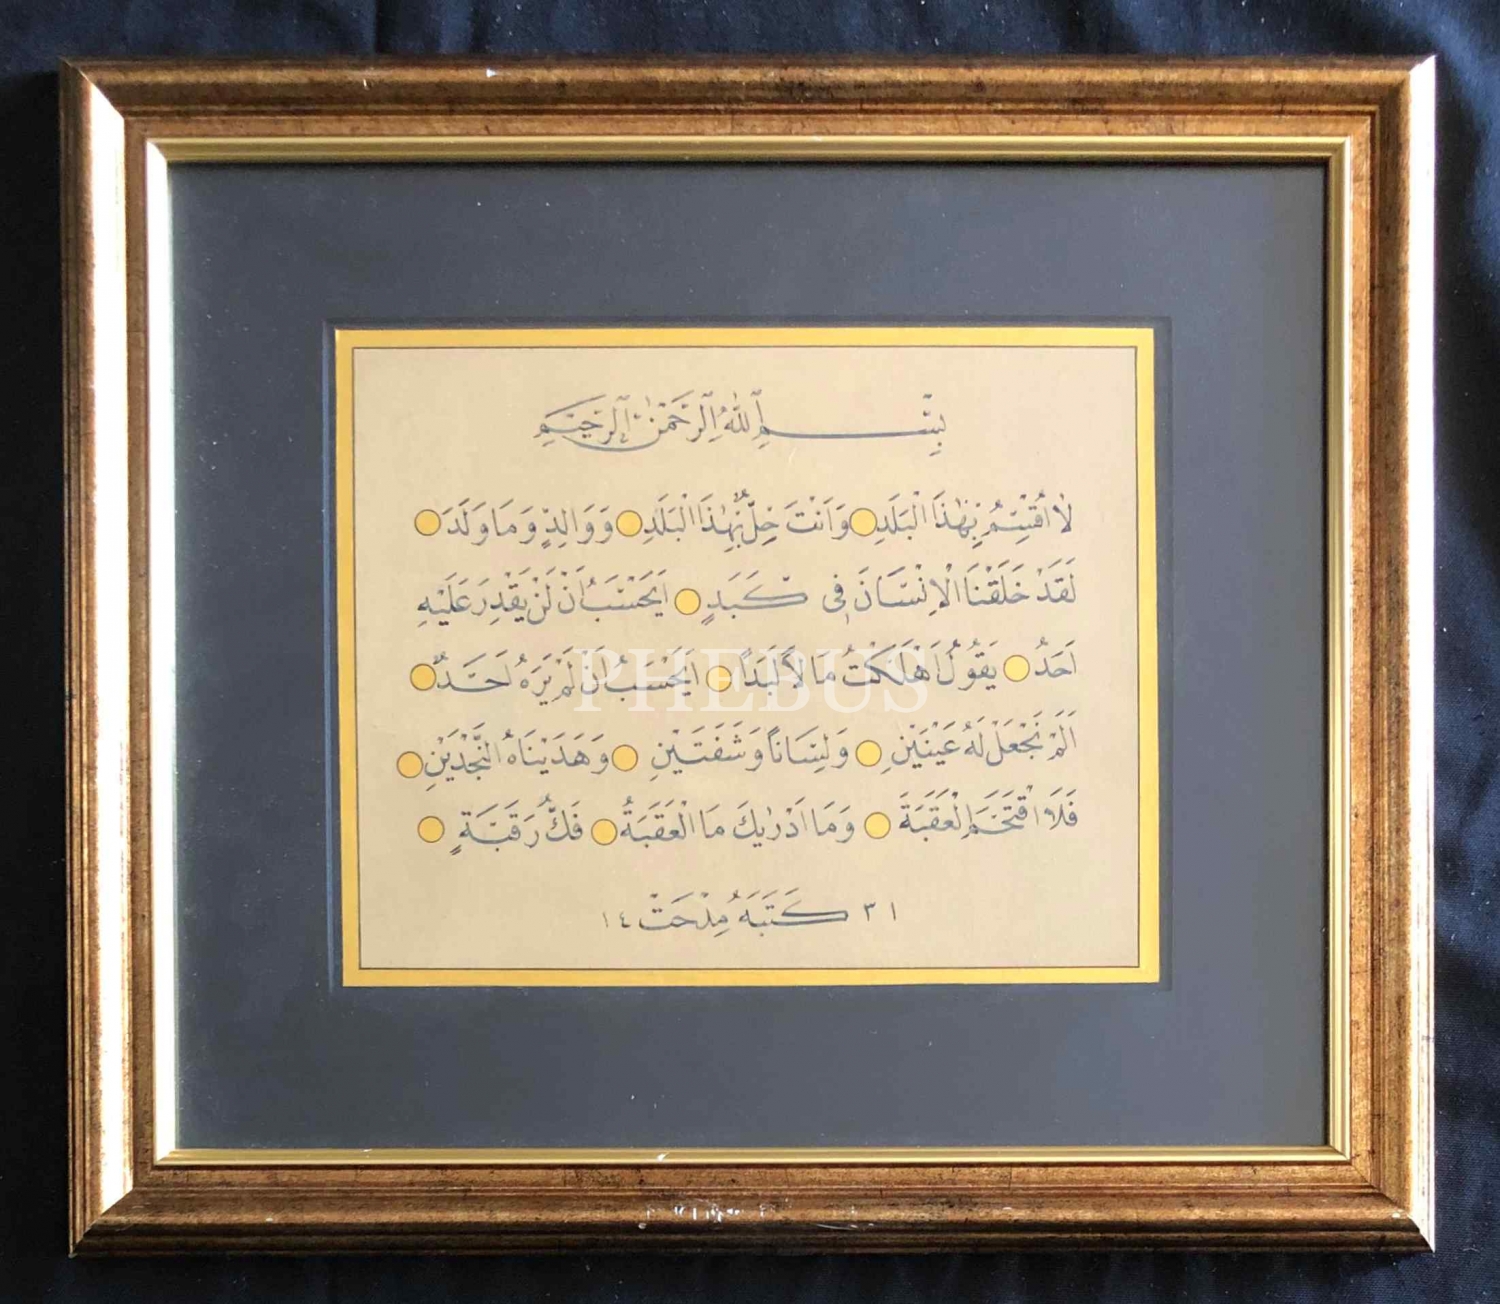 بِسْمِ اللّٰهِ الرَّحْمٰنِ الرَّحِيمِ
لَا اُقْسِمُ بِهٰذَا الْبَلَدِ وَاَنْتَ حِلٌّ بِهٰذَا الْبَلَدِ وَوَالِدٍ وَمَا وَلَدَ
لَقَدْ خَلَقْنَا الْاِنْسَانَ فِى كَبَدٍ اَيَحْسَبُ اَنْ لَنْ يَقْدِرَ عَلَيْهِ
اَحَدٌ يَقُولُ اَهْلَكْتُ مَالًا لُبَدًا اَيَحْسَبُ اَنْ لَمْ يَرَهُ اَحَدٌ
اَلَمْ نَجْعَلْ لَهُ عَيْنَيْنِ وَلِسَانًا وَشَفَتَيْنِ وَهَدَيْنَاهُ النَّجْدَيْنِ
فَلَا اقْتَحَمَ الْعَقَبَةَ وَمَا اَدْرٰيكَ مَا الْعَقَبَةُ فَكُّ رَقَبَةٍ
١٣ كَتَبَهُ مِدْحَتْ ١٤
PHEBUS